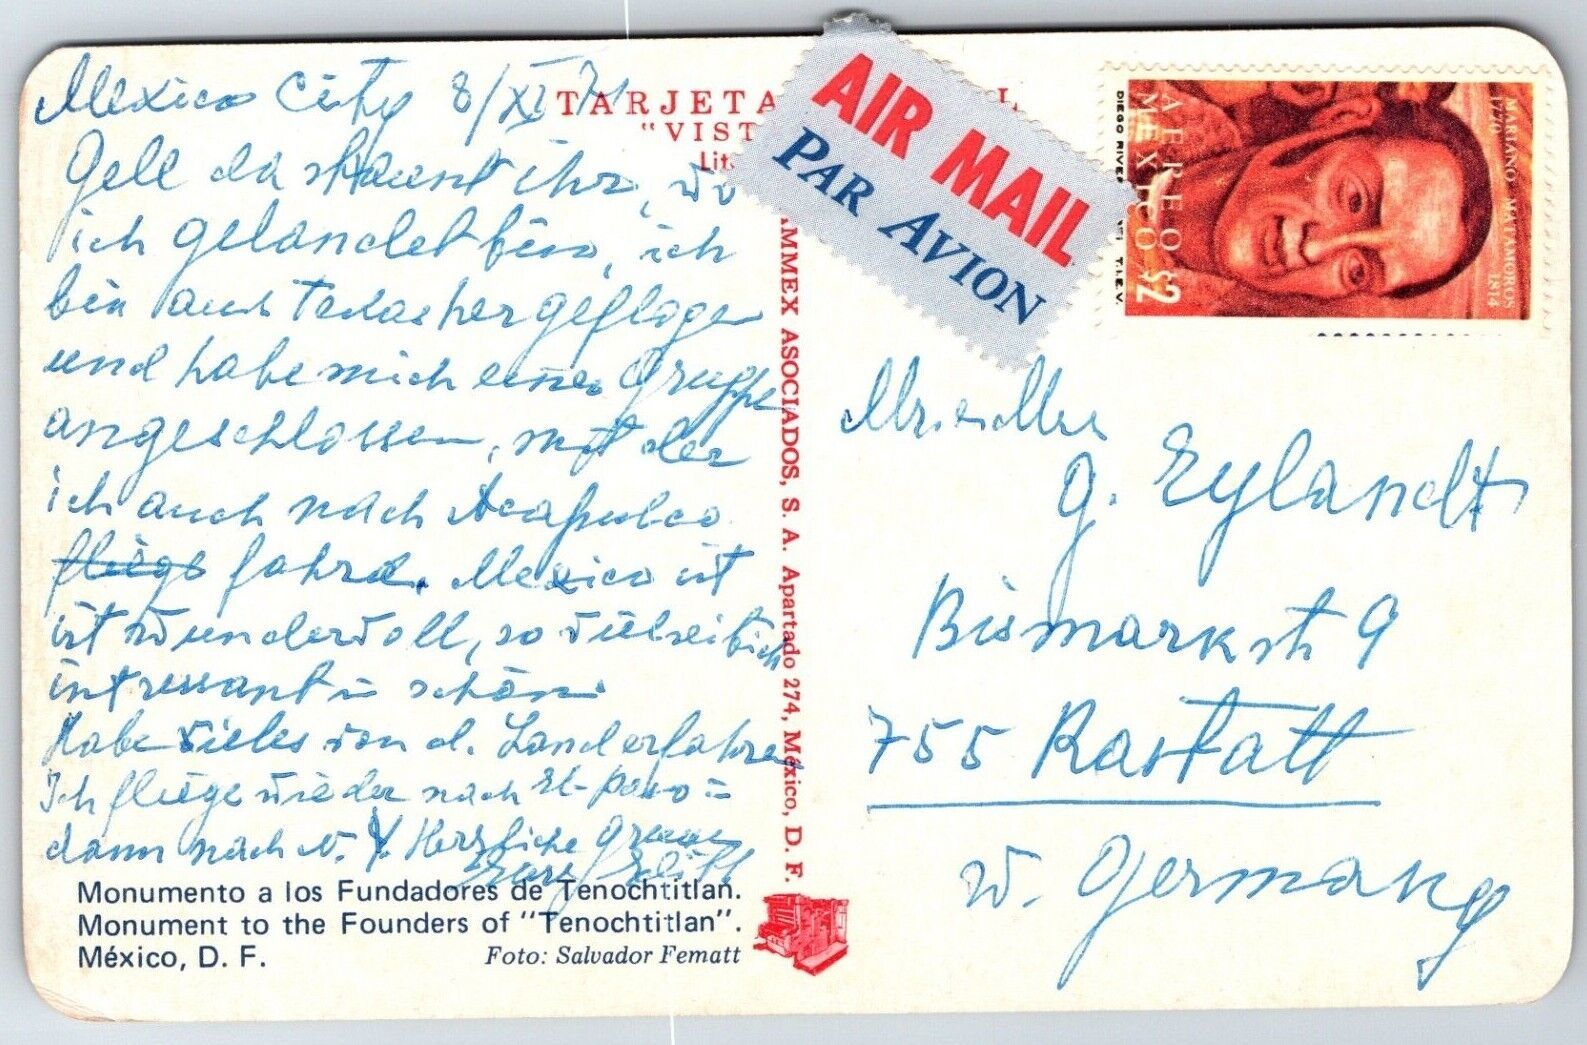 Mexico City 8/XI 71
Gell da staunt ihr, wo
ich gelandet bin, ich
bin aus Texas her geflogen
und habe mich einer Gruppe
angeschlossen, mit der
ich auch nach Acapulco
fliege fahre. Mexico ist
ist wundervoll, so vielseitich
intressant u schön
Habe vieles von d. Land erfahren
Ich fliege wieder nach El-Paso =
dann nach N. Y. Herzliche Grüsse
Monumento a los Fundadores de Tenochtitlan.
Monument to the Founders of "Tenochtitlan".
México, D. F. Foto: Salvador Fematt
TARJETA
"VIST
Lit
AMMEX ASOCIADOS, S. A. Apartado 274, México, D. F.
AIR MAIL
PAR AVION
AEREO
MEXICO $2
MARIANO MATAMOROS
1770 1814
DIEGO RIVER
T.I.E.V.
Mr. & Mrs
G. Eylandt
Bismarkstr 9
755 Rastatt
W. Germany